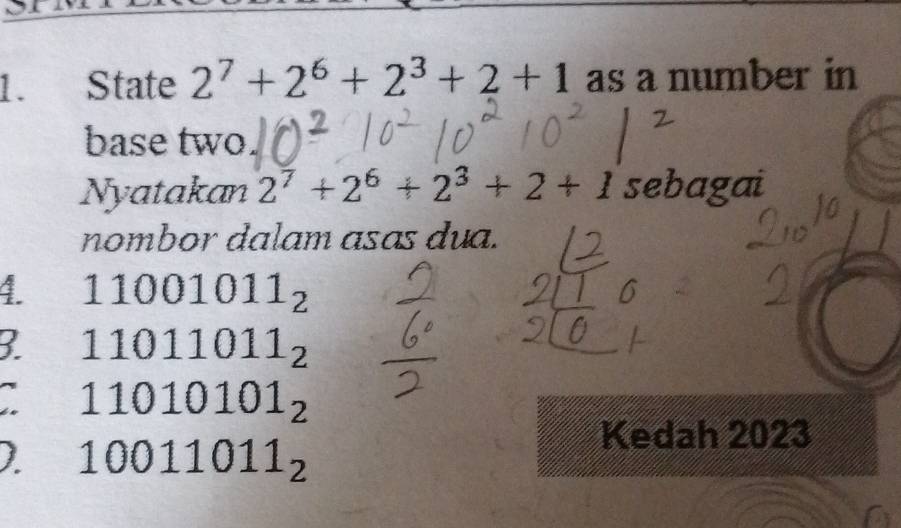 1. State 2⁷ + 2⁶ + 2³ + 2 + 1 as a number in
base two. 10² 10² 10² 10² 1²
Nyatakan 2⁷ + 2⁶ + 2³ + 2 + 1 sebagai
nombor dalam asas dua.
A. 11001011₂
B. 11011011₂
C. 11010101₂
D. 10011011₂
Kedah 2023